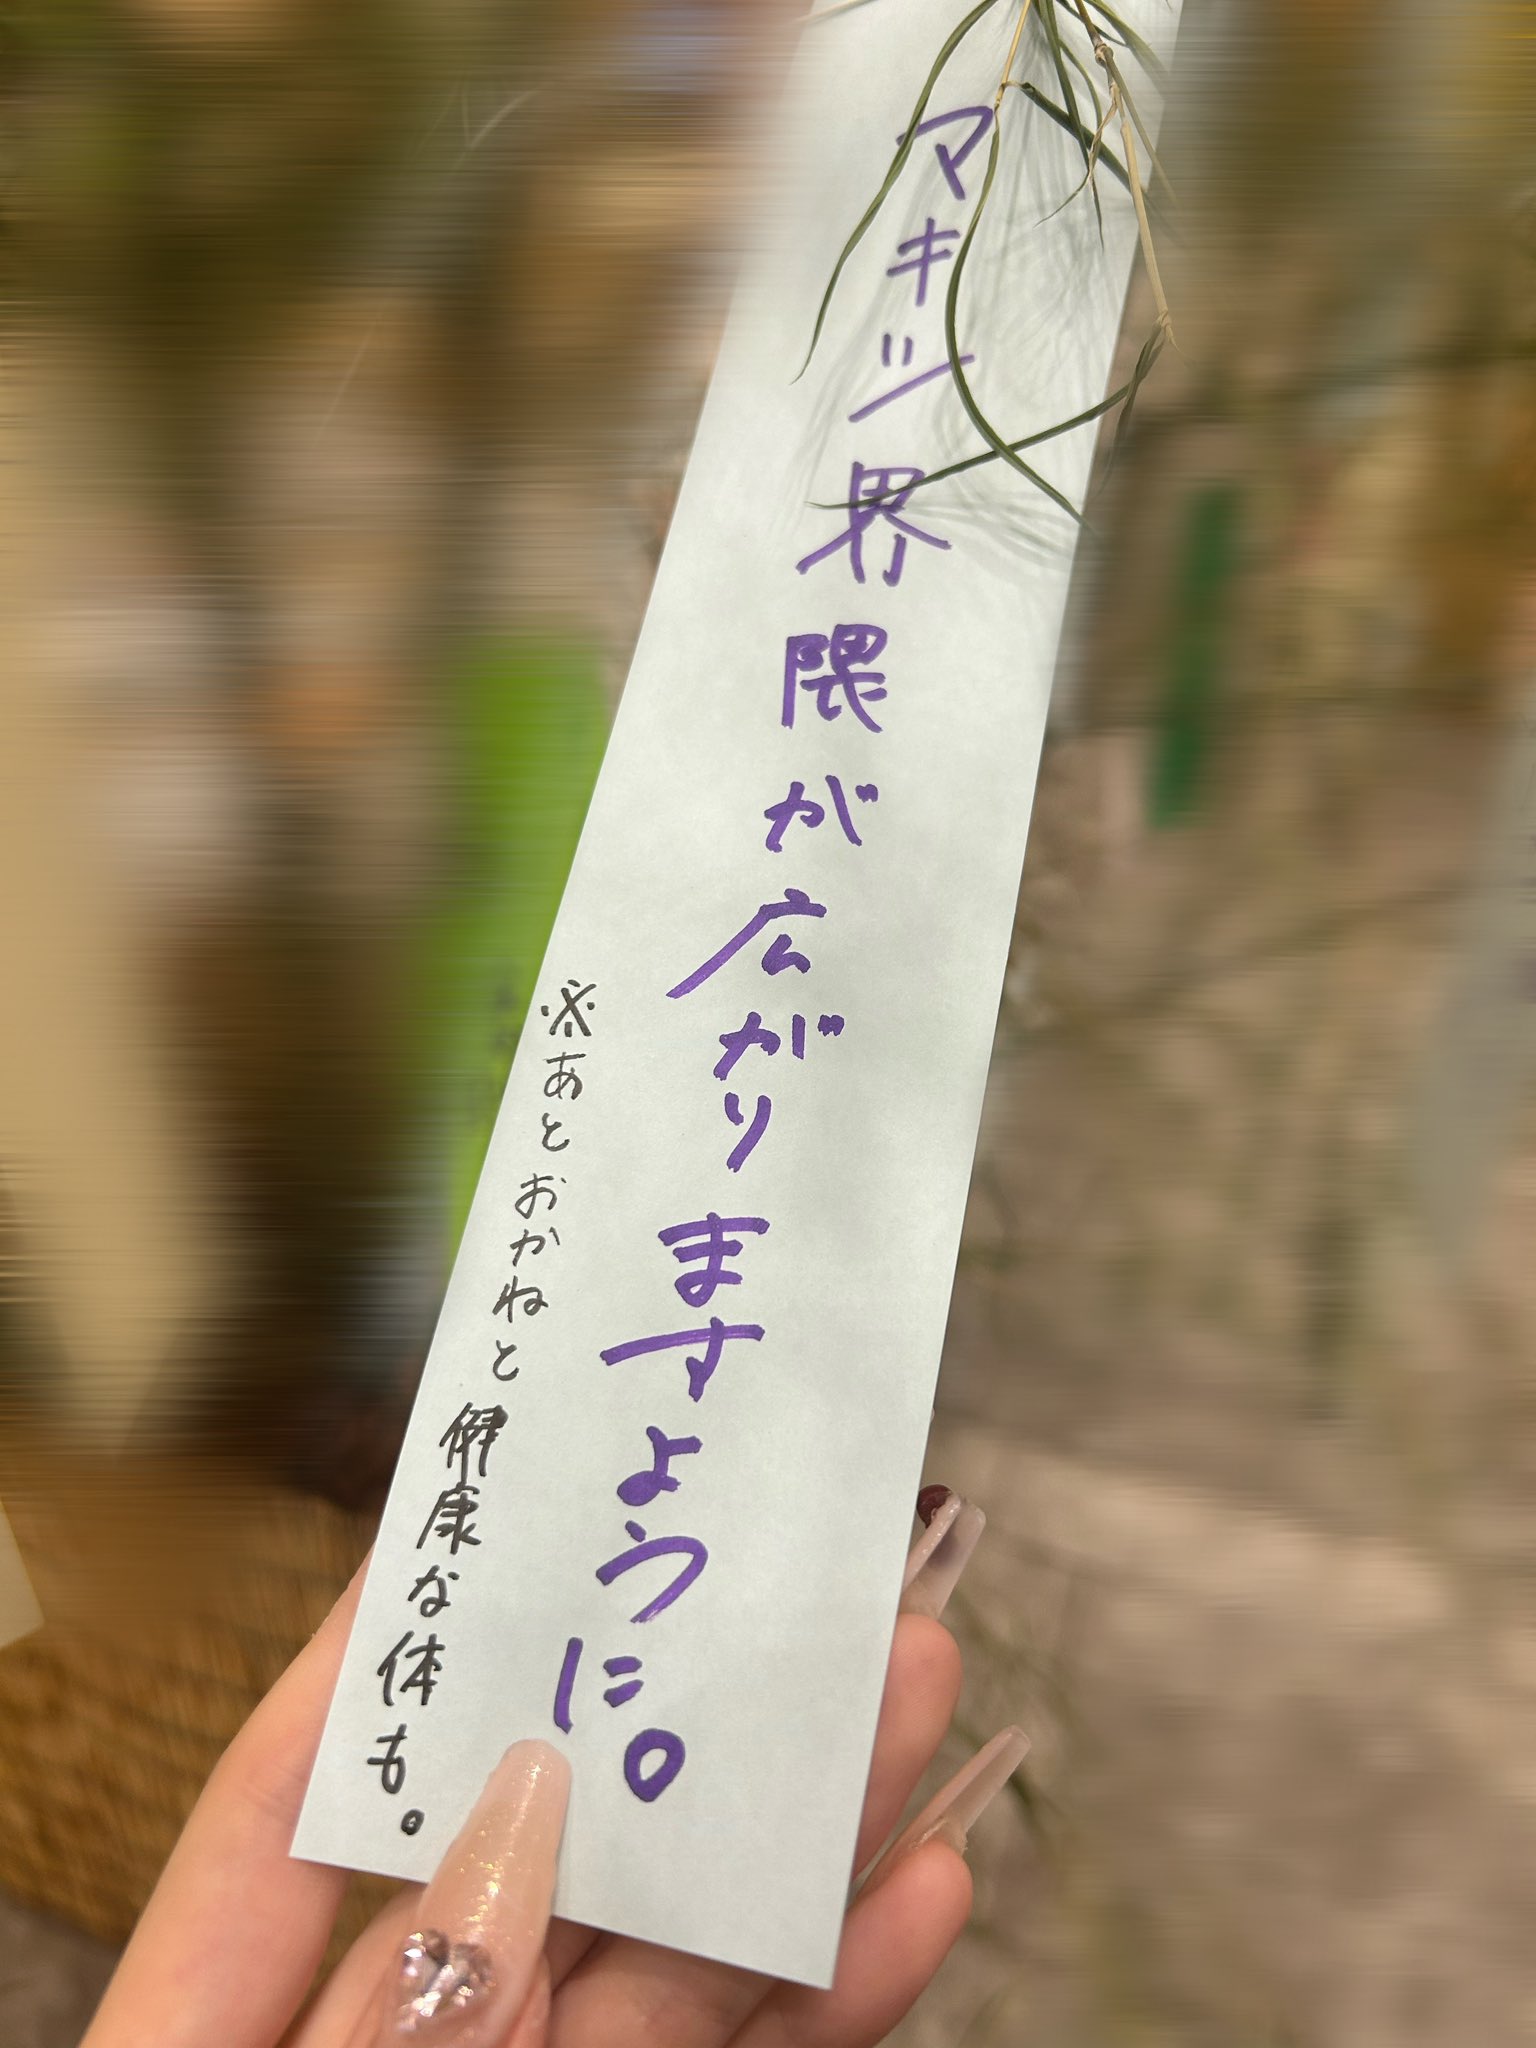 マキシ界隈が広がりますように。
※あとおかねと健康な体も。